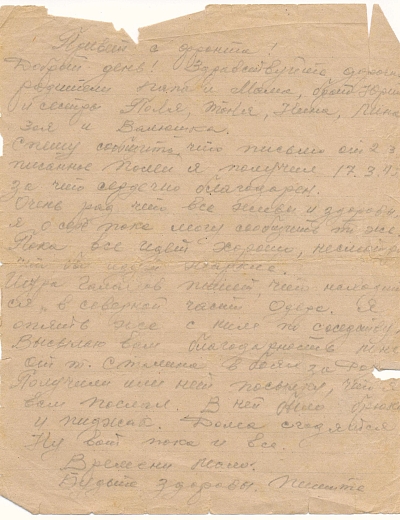 Привет с фронта!
Добрый день! Здравствуйте дорогие
родители папа и мама, брат Юрий
и сестры Поля, Тоня, Нина, Лина
Зоя и Валюшка.
Спешу сообщить, что письмо от 2.3
писанное Полей я получил 17.3.45
за что сердечно благодарен.
Очень рад что все живы и здоровы
я о себе пока могу сообщить то же.
Пока все идет хорошо, несмотря
что вы
Шура пишет, что находит
ся в северной части Одера. Я
опять же с ним по соседству
Высылаю вам благодарность
от т. Сталина в боях за
Получили или нет посылку, что я
вам послал. В ней были брюки
и пиджак. Дома сгодятся
Ну вот пока и все.
Времени мало.
Будьте здоровы. Пишите